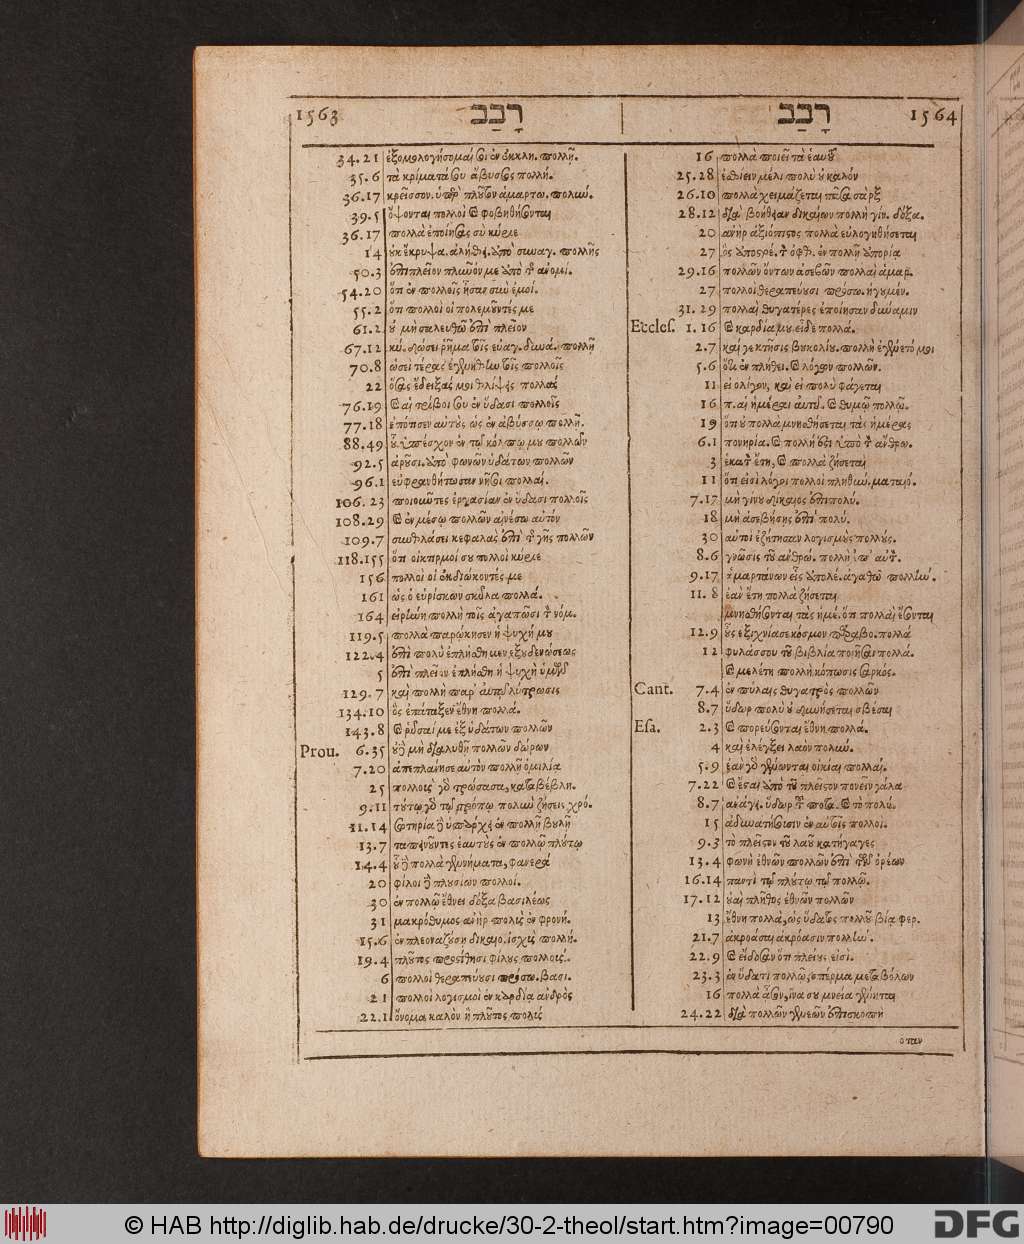 1563 רָבַב רָבַב 1564
34.21 ἐξομολογήσομαί σοι ἐν ἐκκλη. πολλῇ.
35.6 τὰ κρίματά σου ἄβυσσος πολλή.
36.17 κρεῖσσον. ὑπὲρ πλοῦτον ἁμαρτω. πολιώ.
39.5 ὄψονται πολλοὶ καὶ φοβηθήσονται
36.17 πολλὰ ἐποίησας σὺ κύριε
14 οὐκ ἔκρυψα. ἀλήθει. ἀπὸ συναγ. πολλῆς
50.3 ἐπιπλεῖον πλῦνόν με ἀπὸ τῆ ἀνομί.
54.20 ὅτι ἐν πολλοῖς ἦσαν σὺν ἐμοί.
55.2 ὅτι πολλοὶ οἱ πολεμοῦντές με
61.2 οὐ μὴ σαλευθῶ ἐπὶ πλεῖον
67.12 κύ. δώσει ῥῆμα τοῖς εὐαγ. δυνά. πολλῇ
70.8 ὡσεὶ τέρας ἐγενήθην τοῖς πολλοῖς
22 ὅσας ἔδειξάς μοι θλίψεις πολλάς
76.19 καὶ αἱ τρίβοι σου ἐν ὕδασι πολλοῖς
77.18 ἐπότισεν αὐτοὺς ὡς ἐν ἀβύσσῳ πολλῇ.
88.49 ὑπέσχον ἐν τῷ κόλπῳ μου πολλῶν
92.5 ἀπὸ φωνῶν ὑδάτων πολλῶν
96.1 εὐφρανθήτωσαν νῆσοι πολλαί.
106.23 ποιοῦντες ἐργασίαν ἐν ὕδασι πολλοῖς
108.29 καὶ ἐν μέσῳ πολλῶν αἰνέσω αὐτόν
109.7 συνθλάσει κεφαλὰς ἐπὶ τῆς γῆς πολλῶν
118.155 ὅτι οἰκτιρμοί σου πολλοὶ κύριε
156 πολλοὶ οἱ ἐκδιώκοντές με
161 ὡς ὁ εὑρίσκων σκῦλα πολλά.
164 εἰρήνη πολλὴ τοῖς ἀγαπῶσι τὸν νόμ.
119.5 πολλὰ παρῴκησεν ἡ ψυχή μου
122.4 ἐπὶ πολὺ ἐπλήσθημεν ἐξουδενώσεως
5 ἐπὶ πλεῖον ἐπλήσθη ἡ ψυχὴ ἡμῶν
129.7 καὶ πολλὴ παρ' αὐτῷ λύτρωσις
134.10 ὃς ἐπάταξεν ἔθνη πολλά.
143.8 καὶ ῥῦσαί με ἐξ ὑδάτων πολλῶν
Prou. 6.35 οὐδὲ μὴ διαλυθῇ πολλῶν δώρων
7.20 ἀπεπλάνησε αὐτὸν πολλῇ ὁμιλίᾳ
25 πολλοὺς γὰρ τρώσασα, καταβέβλη.
9.11 τούτῳ γὰρ τῷ τρόπῳ πολιὼ ζήσεις χρό.
11.14 σωτηρία δὲ ὑπάρχει ἐν πολλῇ βουλῇ
13.7 ταπεινοῦντες ἑαυτοὺς ἐν πολλῷ πλούτῳ
14.4 οὗ δὲ πολλὰ γεννήματα, φανερά
20 φίλοι δὲ πλουσίων πολλοί.
30 ἐν πολλῷ ἔθνει δόξα βασιλέως
31 μακρόθυμος ἀνὴρ πολὺς ἐν φρονή.
15.6 ἐν πλεοναζούσῃ δικαιο. ἰσχὺς πολλή.
19.4 πλοῦτος προστίθησι φίλους πολλούς.
6 πολλοὶ θεραπεύουσι πρόσω. βασι.
21 πολλοὶ λογισμοὶ ἐν καρδίᾳ ἀνδρός
22.1 ὄνομα καλὸν ἢ πλοῦτος πολύς
16 πολλὰ ποιεῖ τὰ ἑαυτοῦ
25.28 ἐσθίειν μέλι πολὺ οὐ καλόν
26.10 πολλὰ χειμάζεται πᾶσα σάρξ
28.12 διὰ βοήθειαν δικαίων πολλὴ γίν. δόξα.
20 ἀνὴρ ἀξιόπιστος πολλὰ εὐλογηθήσεται
27 ὃς ἀποστρέ. τ ὀφθ. ἐν πολλῇ ἀπορίᾳ
29.16 πολλῶν ὄντων ἀσεβῶν πολλαὶ ἁμαρ.
27 πολλοὶ θεραπεύουσι πρόσω. ἡγουμέν.
31.29 πολλαὶ θυγατέρες ἐποίησαν δύναμιν
Eccles. 1.16 καὶ καρδία μου εἶδε πολλά.
2.7 καί γε κτῆσις βουκολίου. πολλὴ ἐγένετό μοι
5.6 ὅτι ἐν πλήθει. καὶ λόγων πολλῶν.
11 εἰ ὀλίγον, καὶ εἰ πολὺ φάγεται
16 π. αἱ ἡμέραι αὐτοῦ. καὶ θυμῷ πολλῷ.
19 ὅτι οὐ πολλὰ μνησθήσεται τὰς ἡμέρας
6.1 πονηρία. καὶ πολλὴ ἐπὶ τ ἄνθρω.
3 ἑκατ ἔτη, καὶ πολλὰ ζήσεται
11 ὅτι εἰσὶ λόγοι πολλοὶ πληθύν. ματαιό.
7.17 μὴ γίνου δίκαιος ἐπιπολύ.
18 μὴ ἀσεβήσῃς ἐπὶ πολύ.
30 αὐτοὶ ἐζήτησαν λογισμοὺς πολλούς.
8.6 γνῶσις τοῦ ἀνθρώ. πολλὴ ἐπ' αὐτ.
9.17 ἁμαρτάνων εἷς ἀπολέ. ἀγαθω πολλιώ.
11.8 ἐὰν ἔτη πολλὰ ζήσεται
μνησθήσονται τὰς ἡμέ. ὅτι πολλαὶ ἔσονται
12.9 οὖς ἐξιχνιάσε κόσμον παραβο. πολλά
12 φυλάσσου τοῦ βιβλία ποιῆσαι πολλά.
καὶ μελέτη πολλὴ κόπωσις σαρκός.
Cant. 7.4 ἐν πύλαις θυγατρὸς πολλῶν
8.7 ὕδωρ πολὺ οὐ δυνήσεται σβέσαι
Esa. 2.3 καὶ πορεύσονται ἔθνη πολλά.
4 καὶ ἐλέγξει λαὸν πολιώ.
5.9 ἐὰν γὰρ γένωνται οἰκίαι πολλαί.
7.22 καὶ ἔσται ἀπὸ τοῦ πλεῖστον ποιεῖν γάλα
8.7 ἀνάγει. ὕδωρ τ ποτα. καὶ τὸ πολύ.
15 ἀδυνατήσουσιν ἐν αὐτοῖς πολλοί.
9.3 τὸ πλεῖστον τοῦ λαοῦ κατήγαγες
13.4 φωνὴ ἐθνῶν πολλῶν ἐπὶ τῶν ὀρέων
16.14 παντὶ τῷ πλούτῳ τῷ πολλῷ.
17.12 οὐαὶ πλῆθος ἐθνῶν πολλῶν
13 ἔθνη πολλὰ, ὡς ὕδατος πολλοῦ βίᾳ φερ.
21.7 ἀκρόασαι ἀκρόασιν πολλιώ.
22.9 καὶ εἴδοσαν ὅτι πλείους εἰσί.
23.3 ἐν ὕδατι πολλῷ σπέρμα μεταβόλων
16 πολλὰ ᾆσον, ἵνα σου μνεία γένηται
24.22 διὰ πολλῶν γενεῶν ἐπισκοπή
οταν
© HAB http://diglib.hab.de/drucke/30-2-theol/start.htm?image=00790 DFG